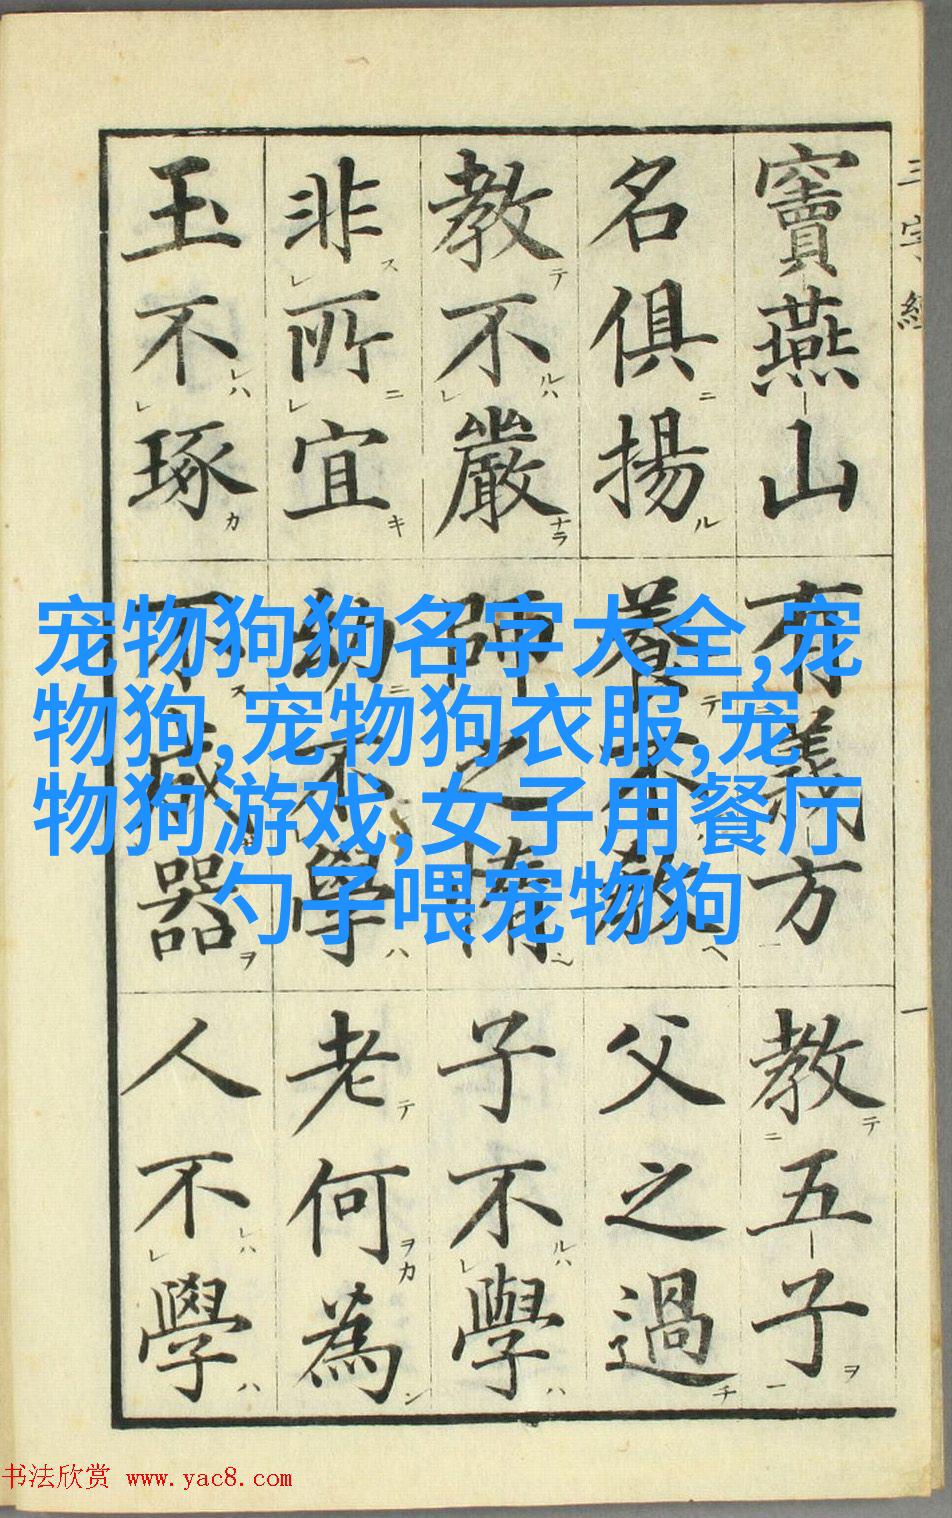 三字經
一
竇燕山有義方教五子
名俱揚養不教父之過
教不嚴師之惰子不學
非所宜幼不學老何為
玉不琢不成器人不學
宠物狗狗名字大全,宠
物狗,宠物狗衣服,宠
物狗游戏,女子用餐厅
勺子喂宠物狗
书法欣赏 www.yac8.com